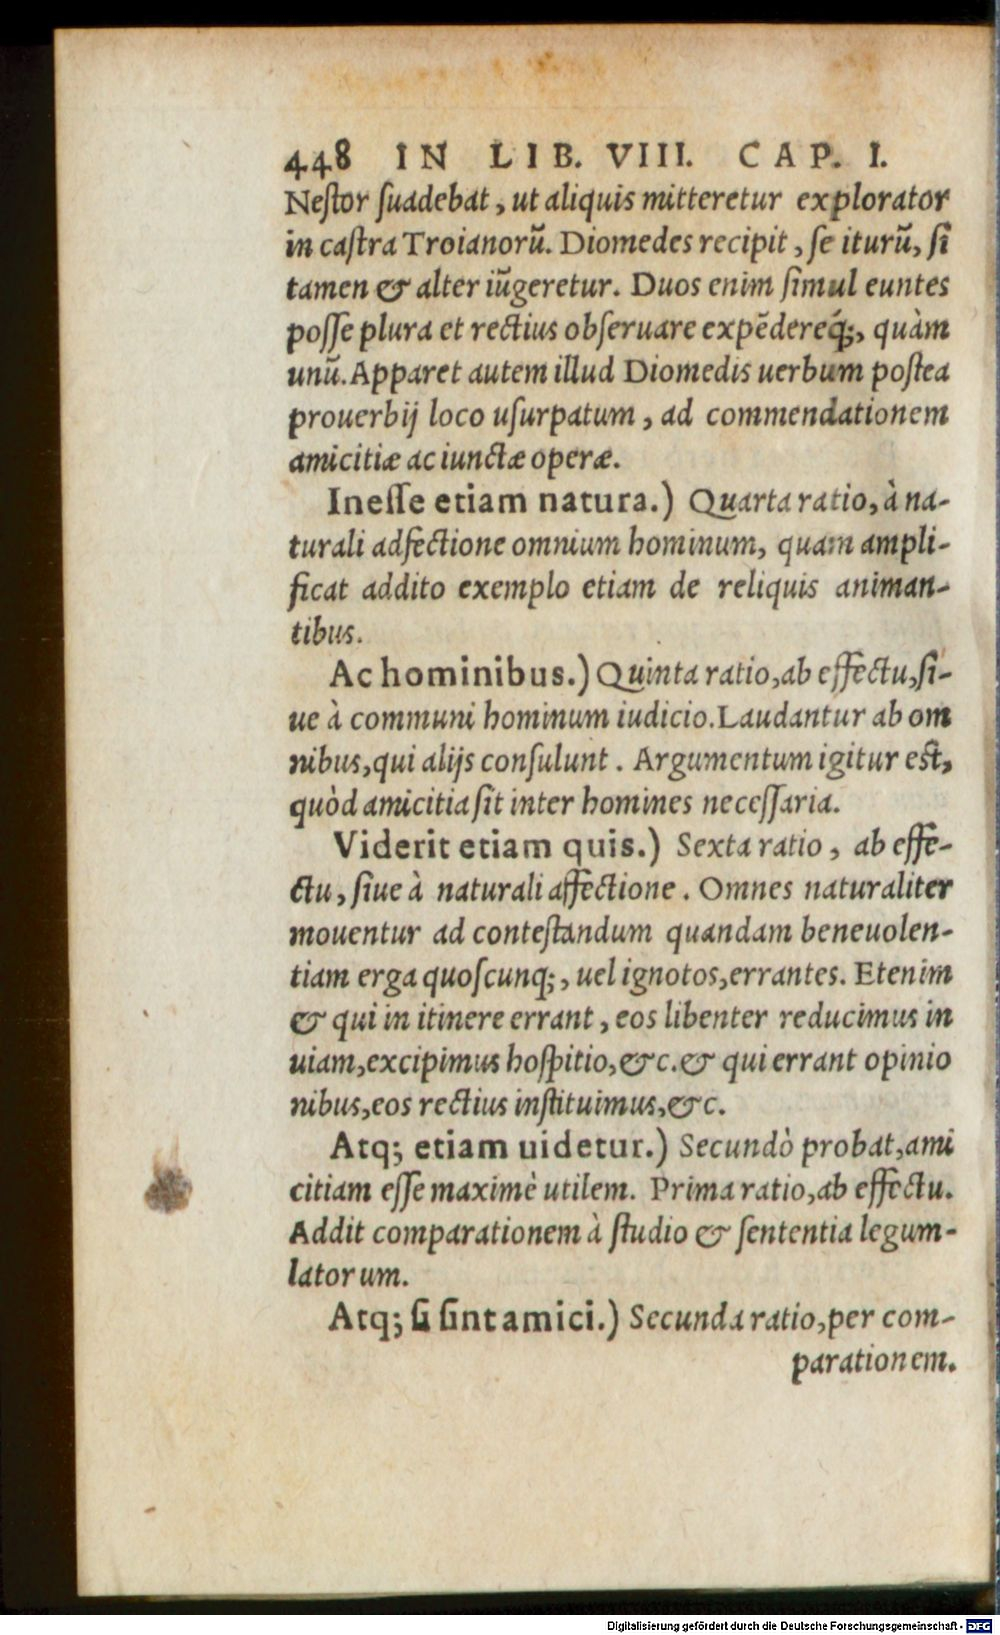 448 IN LIB. VIII. CAP. I.
Neſtor ſuadebat, ut aliquis mitteretur explorator
in caſtra Troianorũ. Diomedes recipit, ſe iturũ, ſi
tamen & alter iũgeretur. Duos enim ſimul euntes
poſſe plura et rectius obſeruare expẽdereq́;, quàm
unũ. Apparet autem illud Diomedis uerbum poſtea
prouerbij loco uſurpatum, ad commendationem
amicitiæ ac iunctæ operæ.
Ineſſe etiam natura.) Quarta ratio, à na-
turali adfectione omnium hominum, quam ampli-
ficat addito exemplo etiam de reliquis animan-
tibus.
Ac hominibus.) Quinta ratio, ab effectu, ſi-
ue à communi hominum iudicio. Laudantur ab om
nibus, qui alijs conſulunt. Argumentum igitur eſt,
quòd amicitia ſit inter homines neceſſaria.
Viderit etiam quis.) Sexta ratio, ab effe-
ctu, ſiue à naturali affectione. Omnes naturaliter
mouentur ad conteſtandum quandam beneuolen-
tiam erga quoſcunq;, uel ignotos, errantes. Etenim
& qui in itinere errant, eos libenter reducimus in
uiam, excipimus hoſpitio, &c. & qui errant opinio
nibus, eos rectius inſtituimus, &c.
Atq; etiam uidetur.) Secundò probat, ami
citiam eſſe maximè utilem. Prima ratio, ab effectu.
Addit comparationem à ſtudio & ſententia legum-
latorum.
Atq; ſi ſint amici.) Secunda ratio, per com-
parationem.
Digitalisierung gefördert durch die Deutsche Forschungsgemeinschaft - DFG